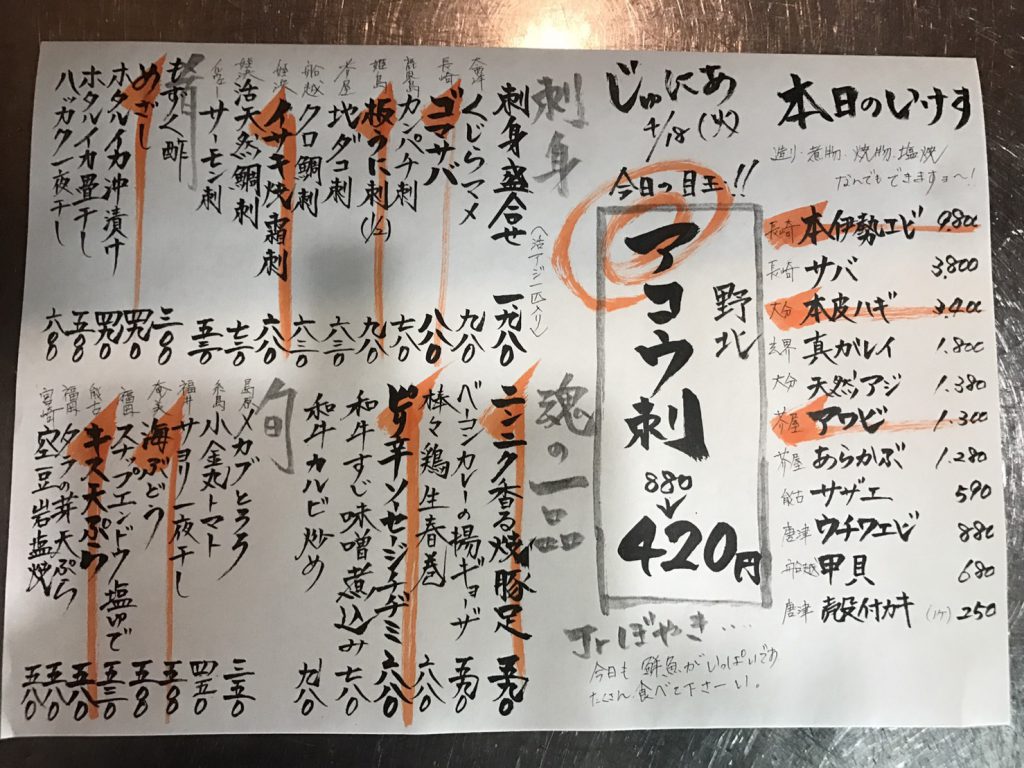 本日のいけす
造り・煮物・焼物・塩焼
なんでもできますョ〜!
長崎 本伊勢エビ 9800
長崎 サバ 3,800
大分 本皮ハギ 3,400
玄界 真がレイ 1,800
大分 天然アジ 1,380
芥屋 アワビ 1,300
芥屋 あらかぶ 1,280
能古 サザエ 590
唐津 ウチワエビ 880
船越 甲貝 680
唐津 殻付カキ (1ヶ) 250
じゅにあ
4/18(火)
今日の目玉!!
野北
アコウ刺
880
420円
Jrぼやき....
今日も鮮魚がいっぱいです
たくさん食べて下さーい。
刺身
刺身盛合せ (活アジ一匹入り) 一、九八〇
くじらマメ 九八〇
長崎 ゴマサバ 八八〇
カンパチ刺 七八〇
姫島 板うに刺(1/2) 九八〇
芥屋 地ダコ刺 六三〇
船越 クロ鯛刺 六三〇
イサキ焼霜刺 六八〇
活天然鯛刺 七三〇
サーモン刺 五三〇
肴
もずく酢 三八〇
めざし 四九〇
ホタルイカ沖漬け 四九〇
ホタルイカ畳干し 五八〇
ハガクレ一夜干し 六八〇
魂の一品
ニンニク香る焼豚足 五九〇
ベーコンカレーの揚ギョーザ 五九〇
棒々鶏生春巻 六八〇
ピリ辛ソーセージチヂミ 六八〇
和牛すじ味噌煮込み 七八〇
和牛カルビ炒め 九八〇
旬
メカブとろろ 三五〇
糸島 小金丸トマト 四五〇
福井 サヨリ一夜干し 五八〇
奄美 海ぶどう 五八〇
福岡 スナップエンドウ塩ゆで 五三〇
能古 キス天ぷら 五八〇
福岡 タラの芽天ぷら 五八〇
宮崎 空豆岩塩焼 五八〇